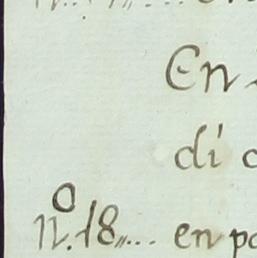 En
di c
n.º 18,,... en po